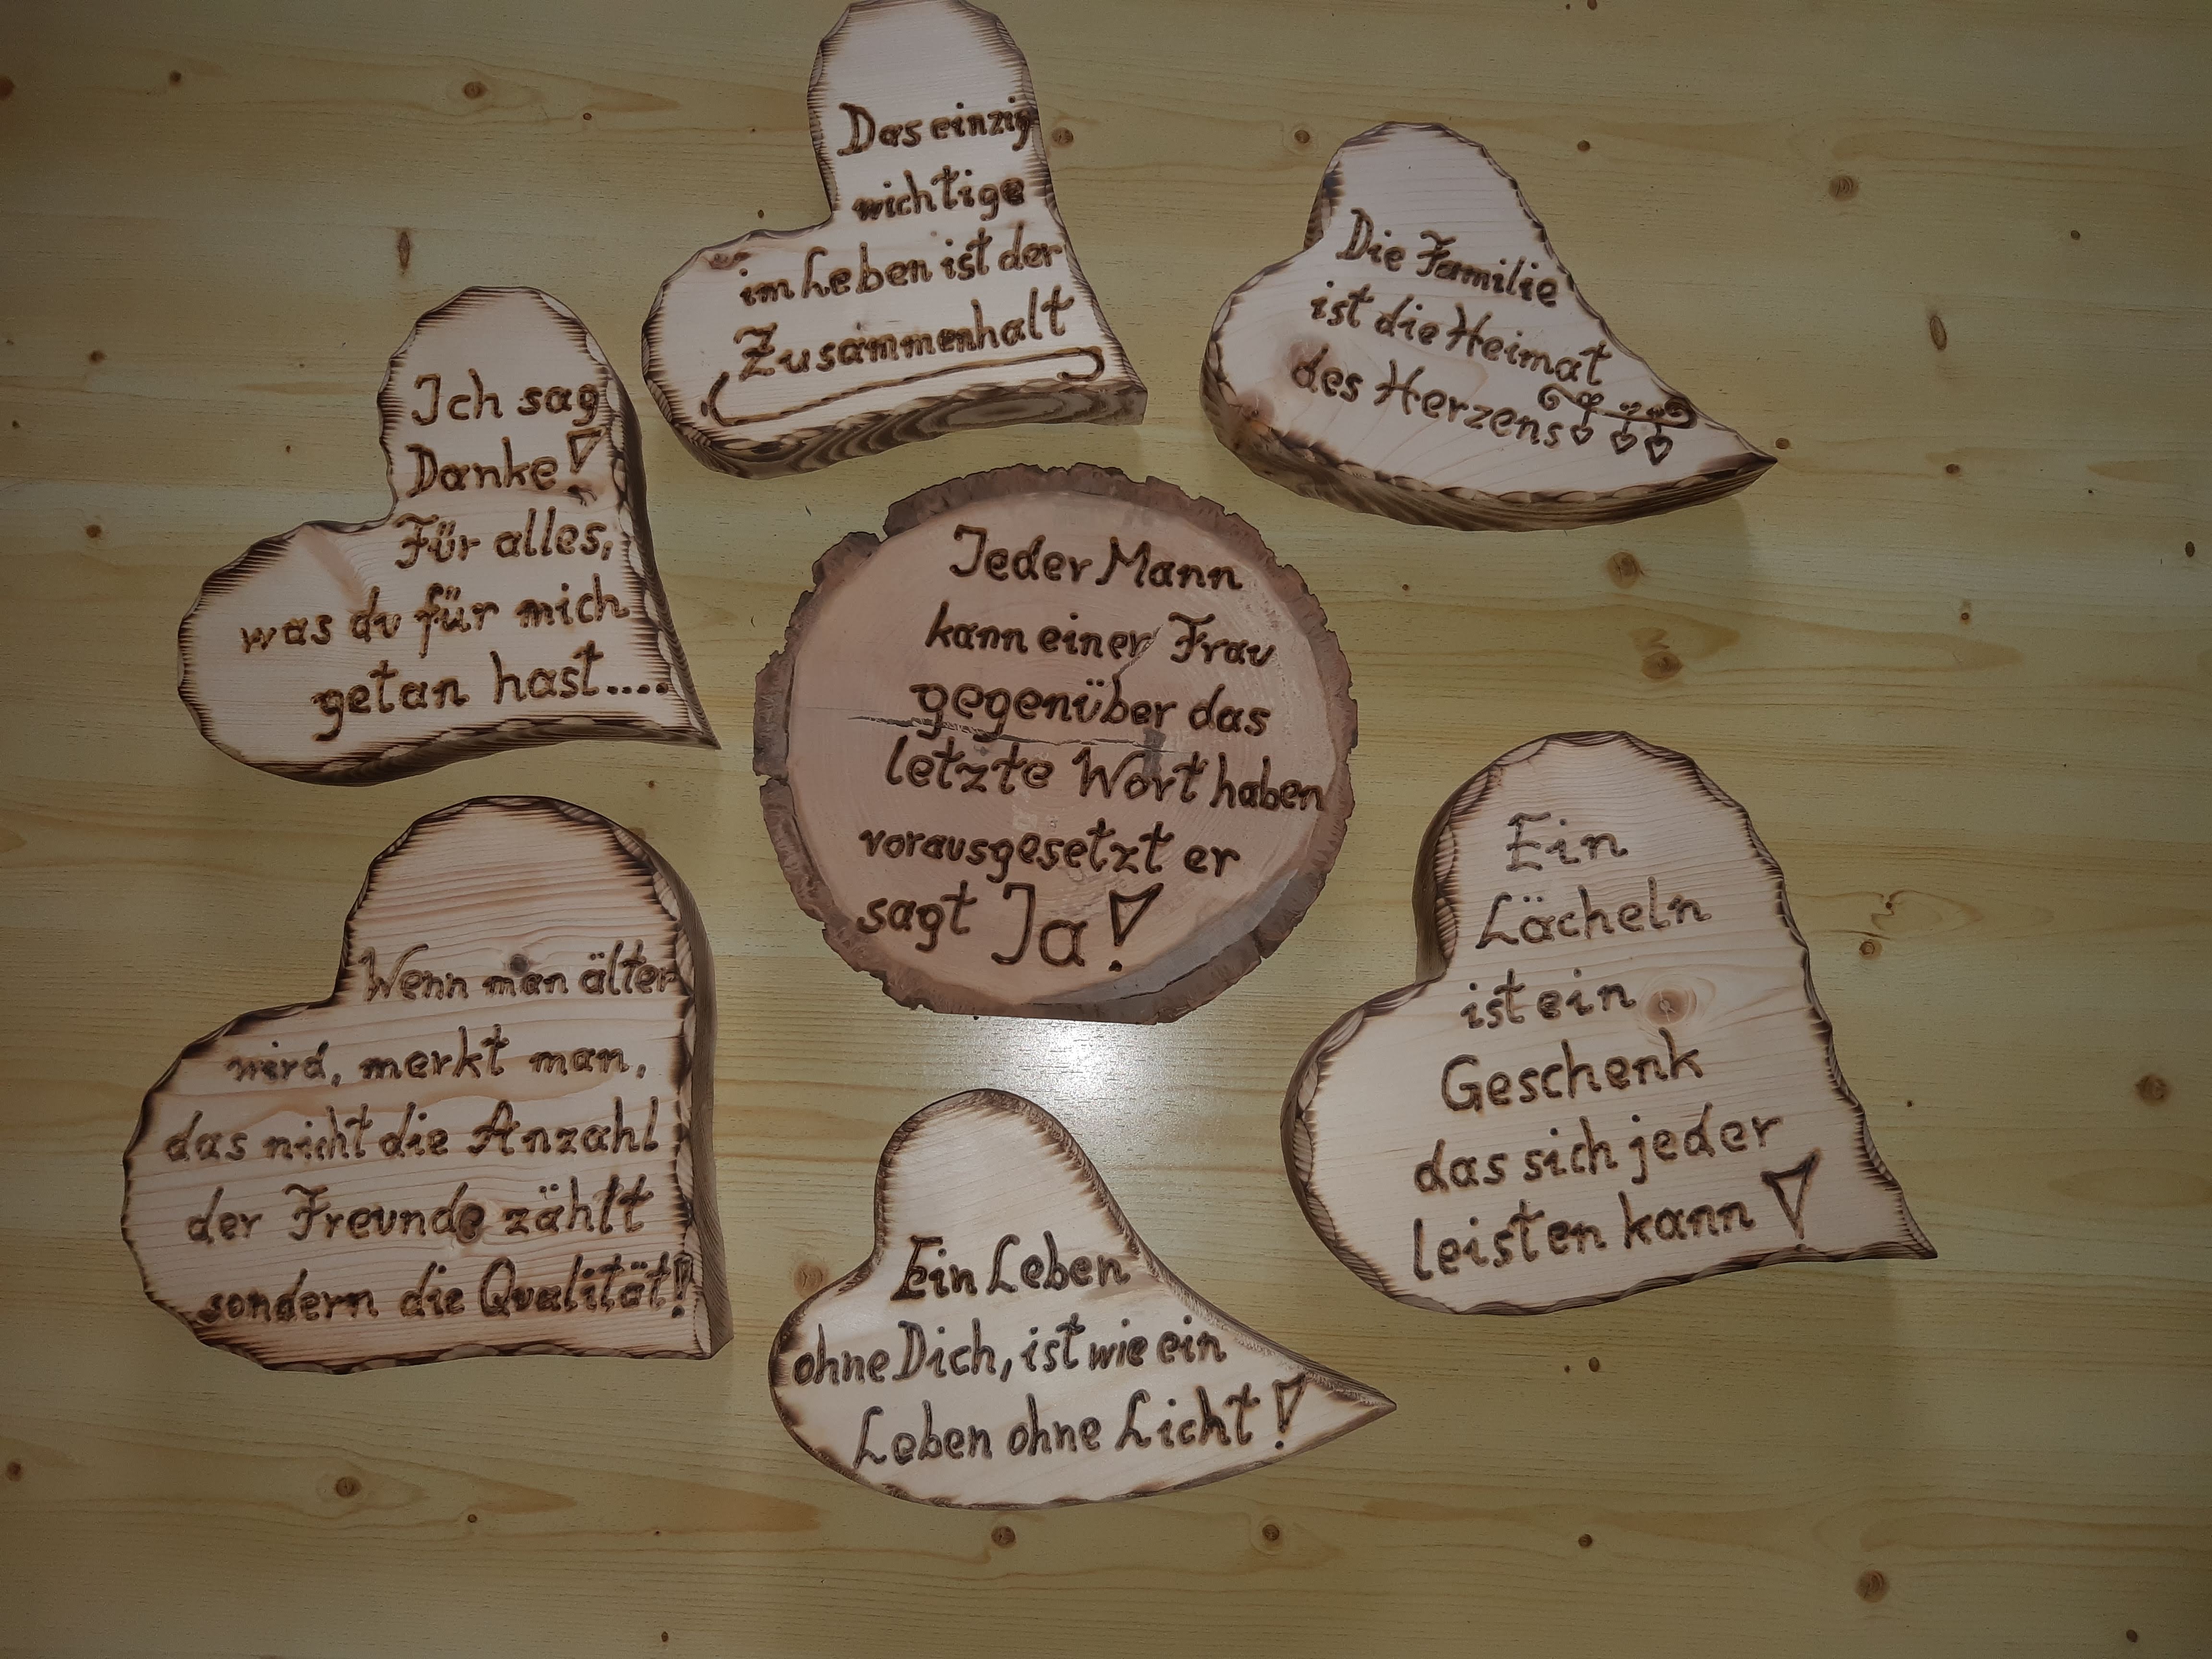 Das einzig
wichtige
im Leben ist der
Zusammenhalt
Die Familie
ist die Heimat
des Herzens
Ich sag
Danke!
Für alles,
was du für mich
getan hast....
Jeder Mann
kann einer Frau
gegenüber das
letzte Wort haben
vorausgesetzt er
sagt Ja!
Wenn man älter
wird, merkt man,
das nicht die Anzahl
der Freunde zählt
sondern die Qualität!
Ein
Lächeln
ist ein
Geschenk
das sich jeder
leisten kann!
Ein Leben
ohne Dich, ist wie ein
Leben ohne Licht!